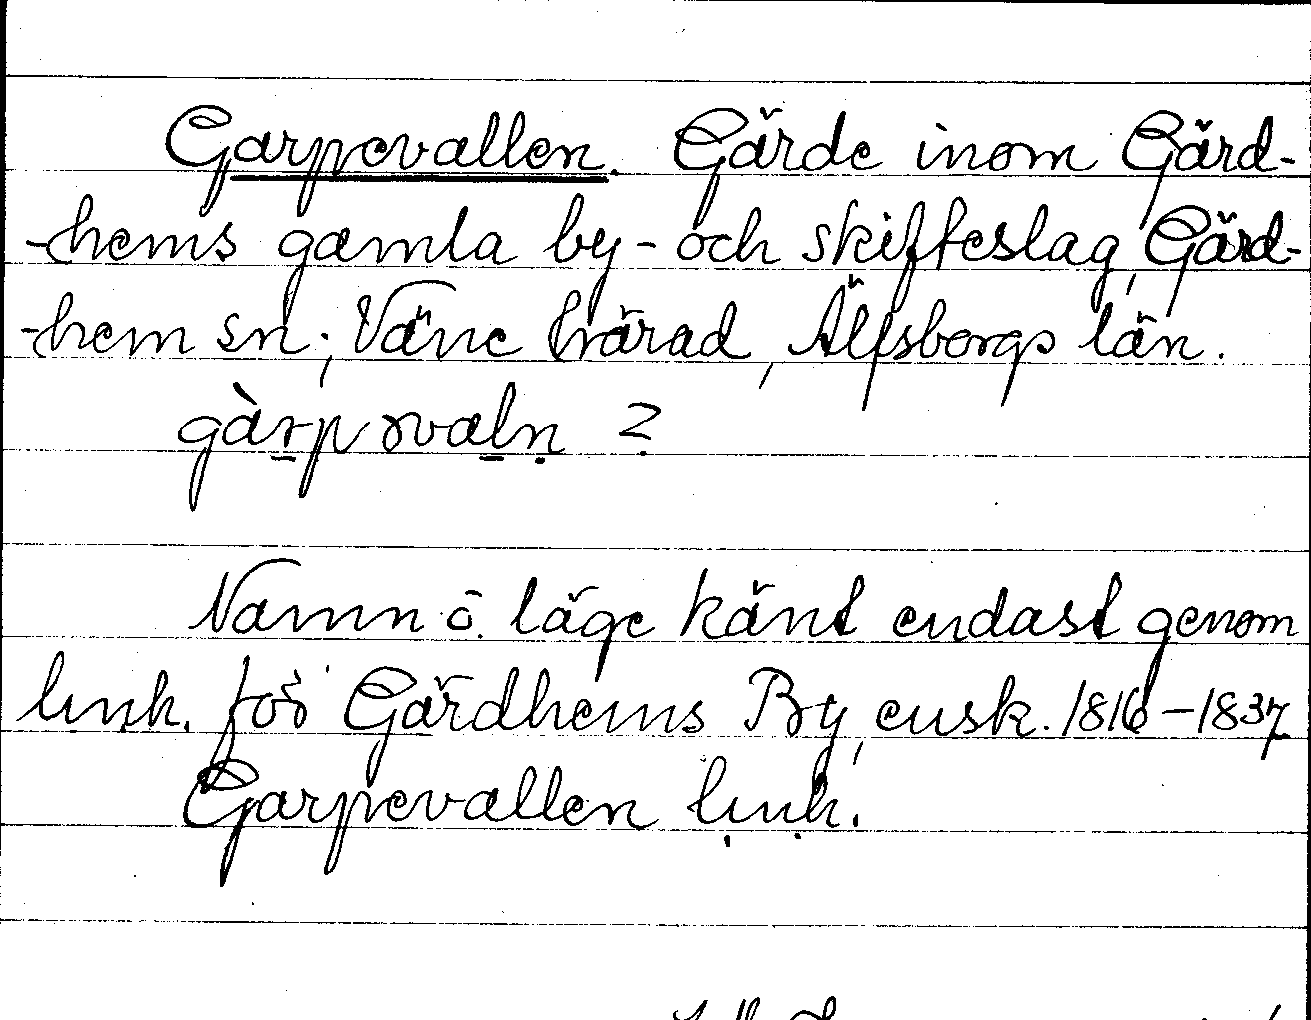 Garpevallen. Gärde inom Gärd-
-hems gamla by- och skifteslag, Gärd-
-hem sn; Väne härad, Älfsborgs län.
gàrpǝvaln ?
Namn o. läge känt endast genom
lmk. för Gärdhems By, ensk. 1816-1837
Garpevallen lmk.